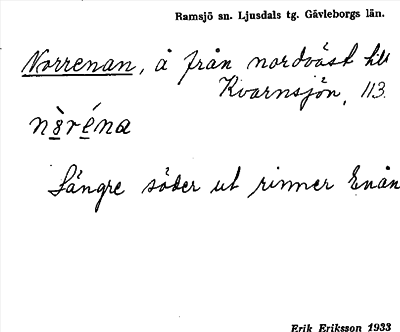 Ramsjö sn. Ljusdals tg. Gävleborgs län.
Norrenan, å från nordväst till
Kvarnsjön, 113.
nòréna
Längre söder ut rinner Enån
Erik Eriksson 1933